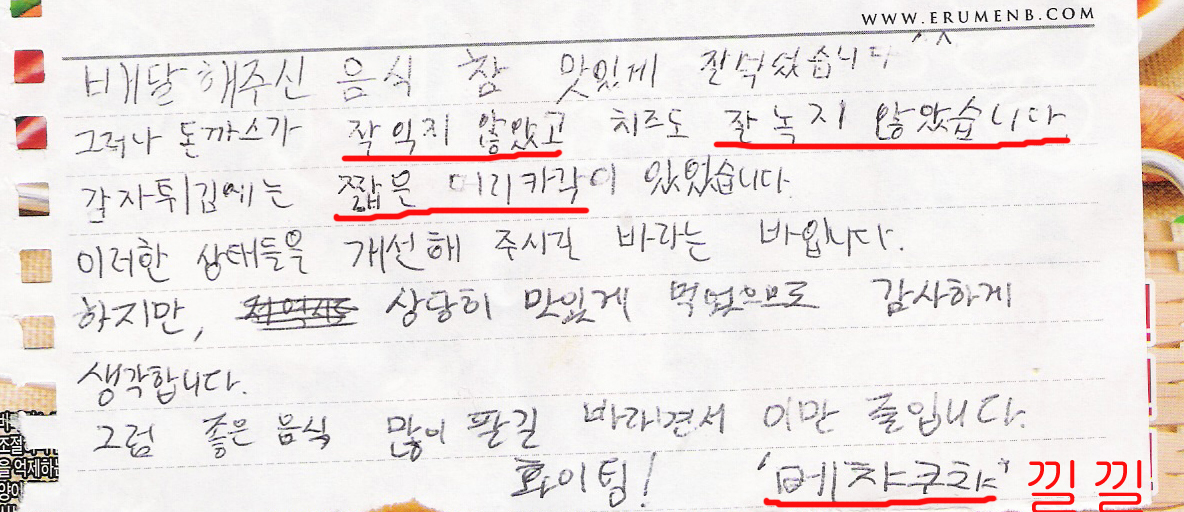 WWW.ERUMENB.COM
배달해주신 음식 참 맛있게 잘먹었습니다^^
그러나 돈까스가 잘익지 않았고 치즈도 잘 녹지 않았습니다.
감자튀김에는 짧은 머리카락이 있었습니다.
이러한 상태들을 개선해 주시라 바라는 바입니다.
하지만, 상당히 맛있게 먹었으므로 감사하게
생각합니다.
그럼 좋은 음식 많이 팔길 바라면서 이만 줄입니다.
화이팅! '메챠쿠챠' 낄낄
조절
을 억제하는